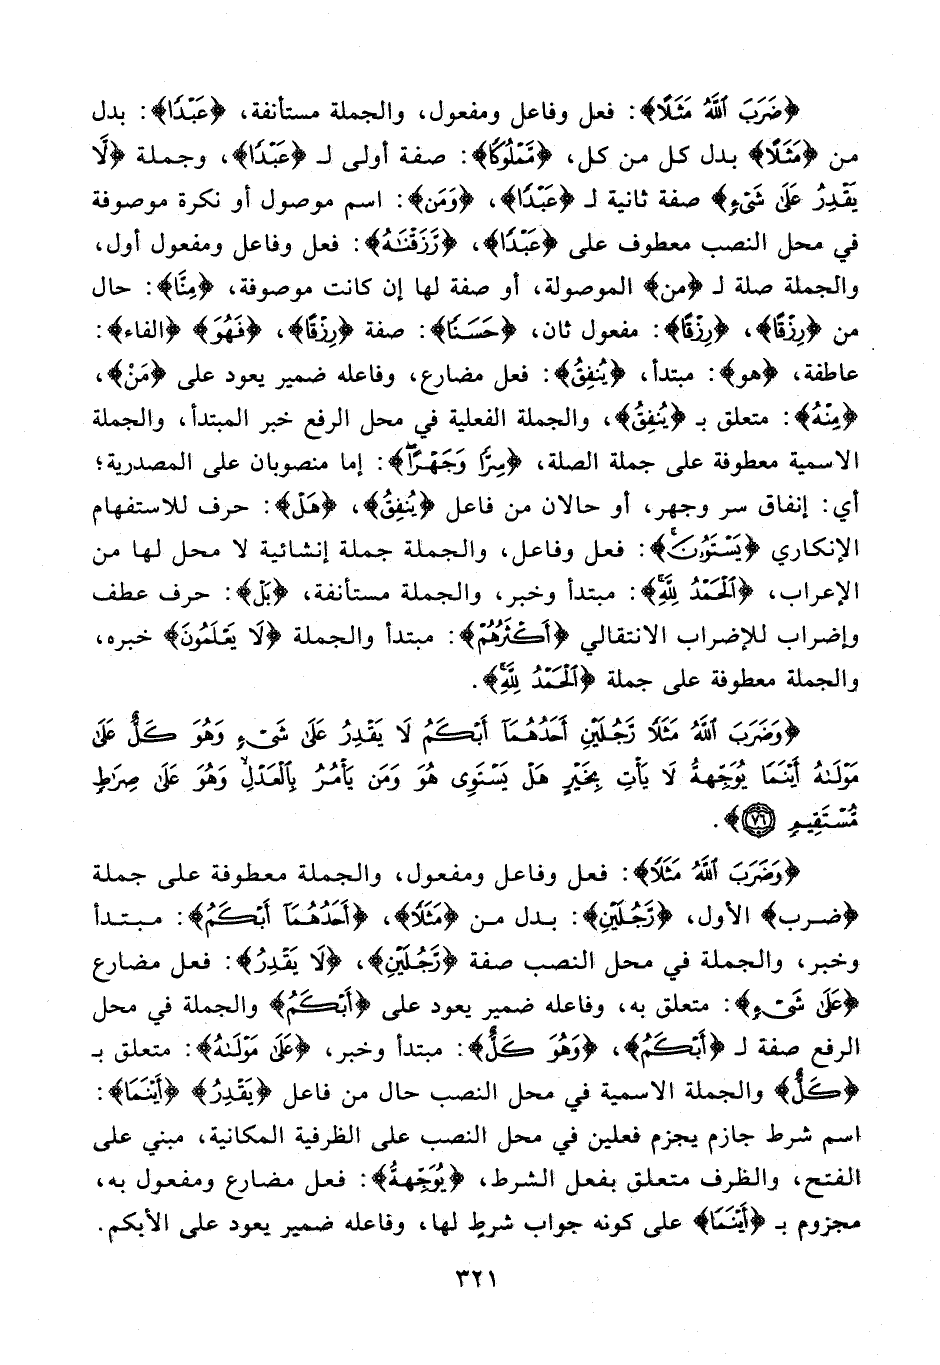 ﴿ضَرَبَ ٱللَّهُ مَثَلًا﴾: فعل وفاعل ومفعول، والجملة مستأنفة، ﴿عَبْدًا﴾: بدل
من ﴿مَثَلًا﴾ بدل كل من كل، ﴿مَّمْلُوكًا﴾: صفة أولى لـ ﴿عَبْدًا﴾، وجملة ﴿لَّا
يَقْدِرُ عَلَىٰ شَىْءٍ﴾ صفة ثانية لـ ﴿عَبْدًا﴾، ﴿وَمَن﴾: اسم موصول أو نكرة موصوفة
في محل النصب معطوف على ﴿عَبْدًا﴾، ﴿رَّزَقْنَٰهُ﴾: فعل وفاعل ومفعول أول،
والجملة صلة لـ ﴿من﴾ الموصولة، أو صفة لها إن كانت موصوفة، ﴿مِنَّا﴾: حال
من ﴿رِزْقًا﴾، ﴿رِزْقًا﴾: مفعول ثان، ﴿حَسَنًا﴾: صفة ﴿رِزْقًا﴾، ﴿فَهُوَ﴾ ﴿الفاء﴾:
عاطفة، ﴿هو﴾: مبتدأ، ﴿يُنفِقُ﴾: فعل مضارع، وفاعله ضمير يعود على ﴿مَنْ﴾،
﴿مِنْهُ﴾: متعلق بـ ﴿يُنفِقُ﴾، والجملة الفعلية في محل الرفع خبر المبتدأ، والجملة
الاسمية معطوفة على جملة الصلة، ﴿سِرًّا وَجَهْرًا﴾: إما منصوبان على المصدرية؛
أي: إنفاق سر وجهر، أو حالان من فاعل ﴿يُنفِقُ﴾، ﴿هَلْ﴾: حرف للاستفهام
الإنكاري ﴿يَسْتَوُۥنَ﴾: فعل وفاعل، والجملة جملة إنشائية لا محل لها من
الإعراب، ﴿ٱلْحَمْدُ لِلَّهِ﴾: مبتدأ وخبر، والجملة مستأنفة، ﴿بَلْ﴾: حرف عطف
وإضراب للإضراب الانتقالي ﴿أَكْثَرُهُمْ﴾: مبتدأ والجملة ﴿لَا يَعْلَمُونَ﴾ خبره،
والجملة معطوفة على جملة ﴿ٱلْحَمْدُ لِلَّهِ﴾.
﴿وَضَرَبَ ٱللَّهُ مَثَلًا رَّجُلَيْنِ أَحَدُهُمَآ أَبْكَمُ لَا يَقْدِرُ عَلَىٰ شَىْءٍ وَهُوَ كَلٌّ عَلَىٰ
مَوْلَىٰهُ أَيْنَمَا يُوَجِّههُّ لَا يَأْتِ بِخَيْرٍ هَلْ يَسْتَوِى هُوَ وَمَن يَأْمُرُ بِٱلْعَدْلِ وَهُوَ عَلَىٰ صِرَٰطٍ
مُّسْتَقِيمٍ ٧٦﴾.
﴿وَضَرَبَ ٱللَّهُ مَثَلًا﴾: فعل وفاعل ومفعول، والجملة معطوفة على جملة
﴿ضرب﴾ الأول، ﴿رَّجُلَيْنِ﴾: بدل من ﴿مَثَلًا﴾، ﴿أَحَدُهُمَآ أَبْكَمُ﴾: مبتدأ
وخبر، والجملة في محل النصب صفة ﴿رَّجُلَيْنِ﴾، ﴿لَا يَقْدِرُ﴾: فعل مضارع
﴿عَلَىٰ شَىْءٍ﴾: متعلق به، وفاعله ضمير يعود على ﴿أَبْكَمُ﴾ والجملة في محل
الرفع صفة لـ ﴿أَبْكَمُ﴾، ﴿وَهُوَ كَلٌّ﴾: مبتدأ وخبر، ﴿عَلَىٰ مَوْلَىٰهُ﴾: متعلق بـ
﴿كَلٌّ﴾ والجملة الاسمية في محل النصب حال من فاعل ﴿يَقْدِرُ﴾ ﴿أَيْنَمَا﴾:
اسم شرط جازم يجزم فعلين في محل النصب على الظرفية المكانية، مبني على
الفتح، والظرف متعلق بفعل الشرط، ﴿يُوَجِّههُّ﴾: فعل مضارع ومفعول به،
مجزوم بـ ﴿أَيْنَمَا﴾ على كونه جواب شرطٍ لها، وفاعله ضمير يعود على الأبكم.
٣٢١